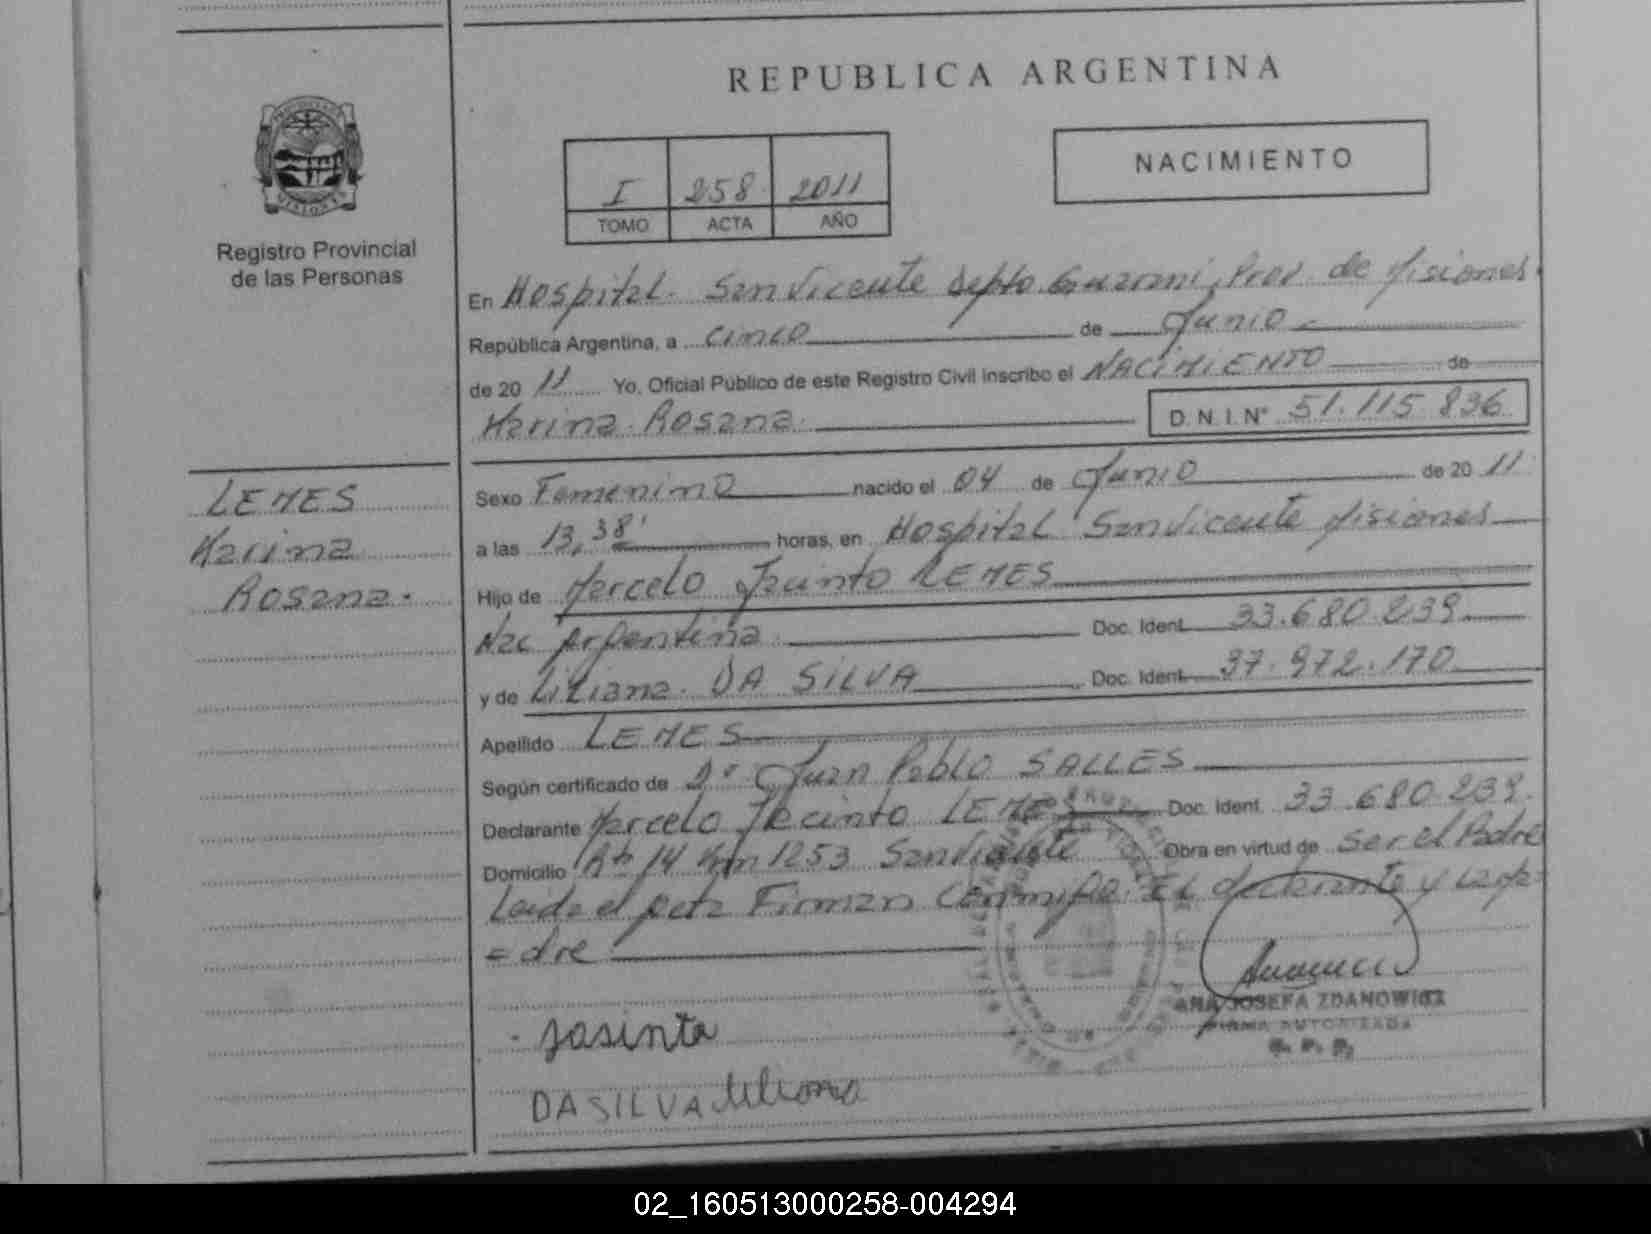 REPUBLICA ARGENTINA
I 258 2011
TOMO ACTA AÑO
NACIMIENTO
Registro Provincial
de las Personas
En Hospital. San Vicente depto. Guarani, Prov. de Misiones
República Argentina, a cinco de Junio
de 20 11 Yo, Oficial Público de este Registro Civil inscribo el NACIMIENTO de
Karina Rosana D. N. I. N° 51.115.836
LEMES
Karina
Rosana.
Sexo Femenino nacido el 04 de Junio de 20 11
a las 13,38' horas, en Hospital San Vicente Misiones
Hijo de Marcelo Jacinto LEMES
Nac Argentina Doc. Ident. 33.680.239
y de Liliana DA SILVA Doc. Ident. 37.972.170
Apellido LEMES
Según certificado de Dr Juan Pablo SALLES
Declarante Marcelo Jacinto LEMES Doc. Ident. 33.680.239.
Domicilio Rta 14 Km 1253 San Vicente Obra en virtud de Ser el Padre
Leida el acta Firman Conmigo El declarante y la ma
=dre
ANA JOSEFA ZDANOWICZ
FIRMA AUTORIZADA
R. P. P.
Jasinto
DA SILVA Liliana
02_160513000258-004294